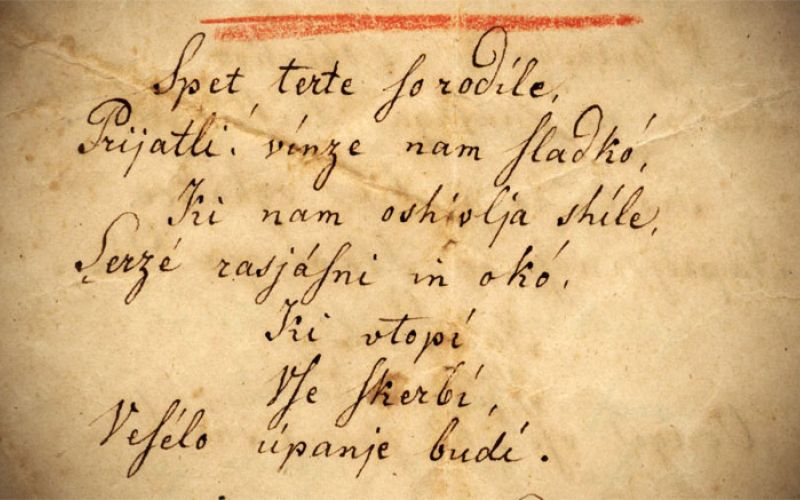 Spet terte ſo rodíle,
Prijatli! vínze nam ſladkó,
Ki nam oshívlja shíle,
Serzé rasjáſni in okó,
Ki vtopí
Vſe ſkerbí,
Veſélo úpanje budí.